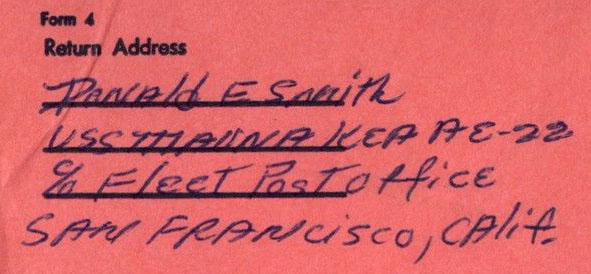 Form 4
Return Address
Donald E Smith
USS MAUNA KEA AE-22
c/o Fleet Post Office
SAN FRANCISCO, CALif.